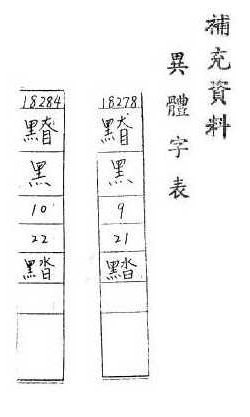 補充資料
異體字表
18278
黑
9
21
18284
黑
10
22